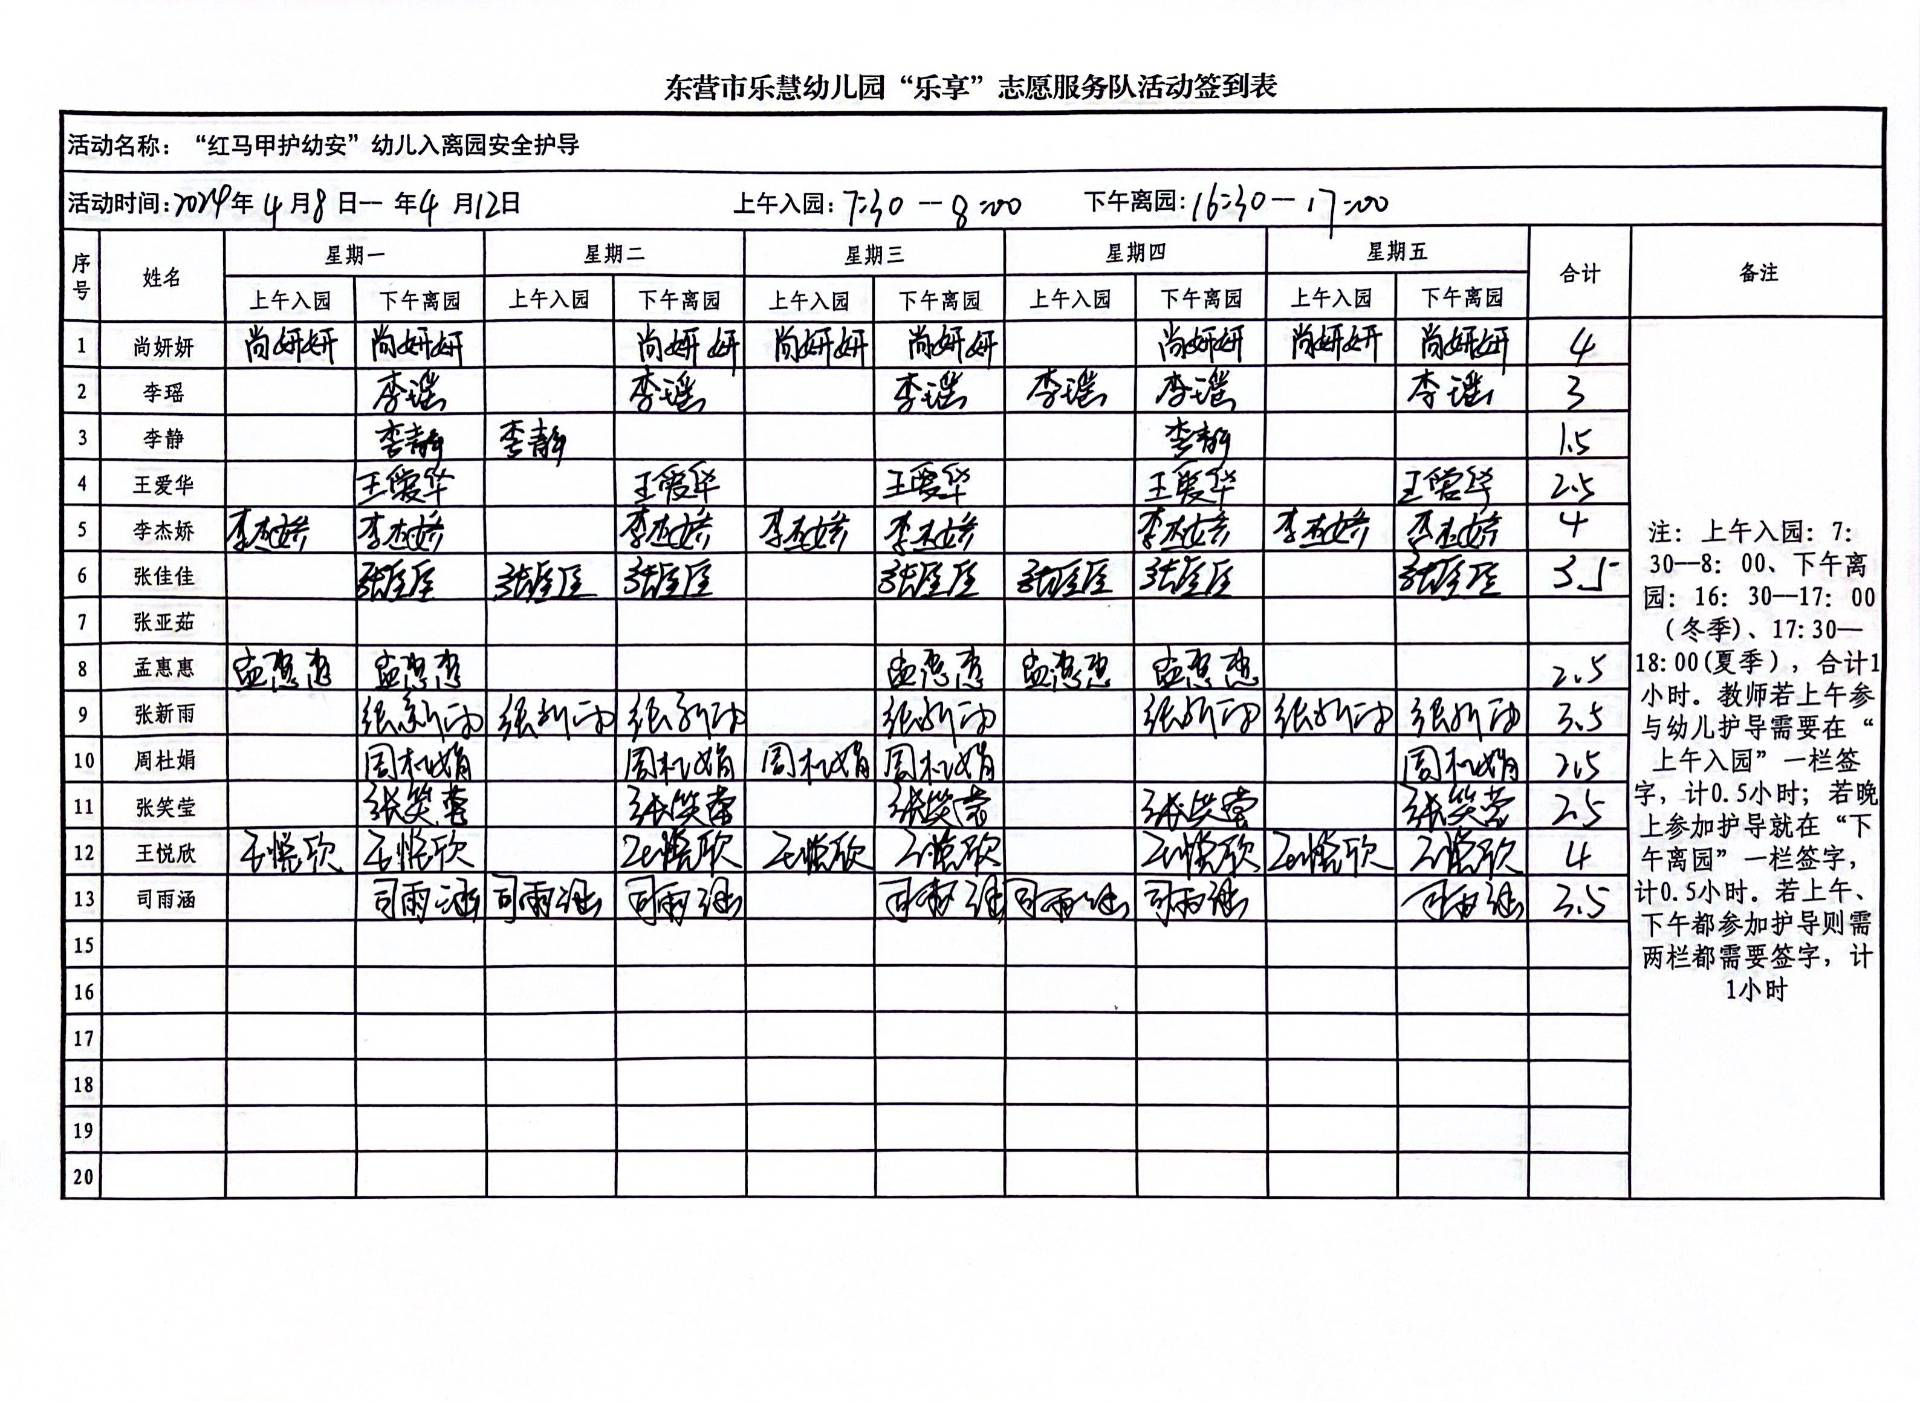 东营市乐慧幼儿园“乐享”志愿服务队活动签到表
活动名称：“红马甲护幼安”幼儿入离园安全护导
活动时间:2024年4月8日--年4月12日 上午入园:7:30--8:00 下午离园:16:30--17:00
序号 姓名 星期一 星期二 星期三 星期四 星期五 合计 备注
上午入园 下午离园 上午入园 下午离园 上午入园 下午离园 上午入园 下午离园 上午入园 下午离园
1 尚妍妍 尚妍妍 尚妍妍 尚妍妍 尚妍妍 尚妍妍 尚妍妍 尚妍妍 尚妍妍 4
2 李瑶 李瑶 李瑶 李瑶 李瑶 李瑶 李瑶 3
3 李静 李静 李静 李静 1.5
4 王爱华 王爱华 王爱华 王爱华 王爱华 王爱华 2.5
5 李杰娇 李杰娇 李杰娇 李杰娇 李杰娇 李杰娇 李杰娇 李杰娇 李杰娇 4
6 张佳佳 张佳佳 张佳佳 张佳佳 张佳佳 张佳佳 张佳佳 张佳佳 3.5
7 张亚茹
8 孟惠惠 孟惠惠 孟惠惠 孟惠惠 孟惠惠 孟惠惠 2.5
9 张新雨 张新雨 张新雨 张新雨 张新雨 张新雨 张新雨 张新雨 3.5
10 周杜娟 周杜娟 周杜娟 周杜娟 周杜娟 周杜娟 2.5
11 张笑莹 张笑莹 张笑莹 张笑莹 张笑莹 张笑莹 2.5
12 王悦欣 王悦欣 王悦欣 王悦欣 王悦欣 王悦欣 王悦欣 王悦欣 王悦欣 4
13 司雨涵 司雨涵 司雨涵 司雨涵 司雨涵 司雨涵 司雨涵 司雨涵 3.5
15
16
17
18
19
20
注：上午入园：7：
30—8：00、下午离
园：16：30—17：00
（冬季）、17:30—
18:00(夏季），合计1
小时。教师若上午参
与幼儿护导需要在“
上午入园”一栏签
字，计0.5小时；若晚
上参加护导就在“下
午离园”一栏签字，
计0.5小时。若上午、
下午都参加护导则需
两栏都需要签字，计
1小时